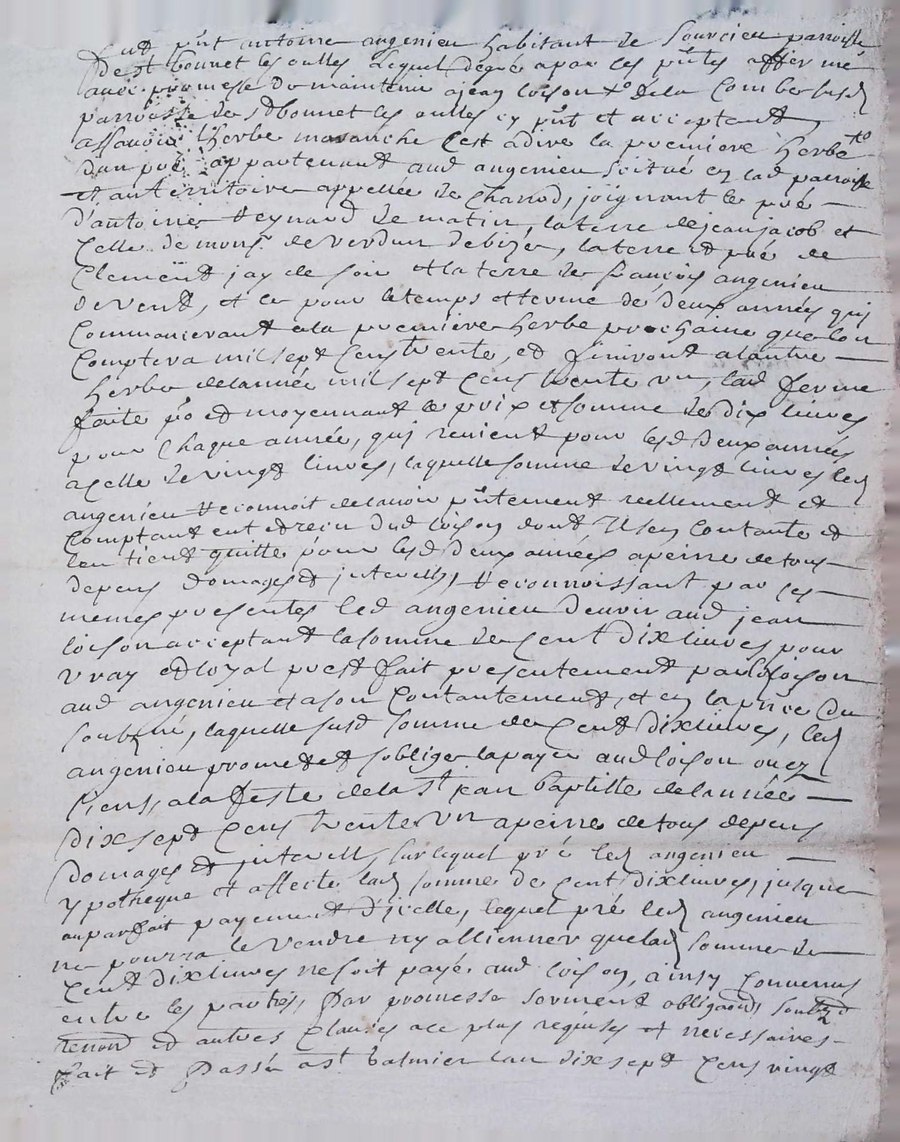 fut p'nt antoine angenieu habitant de Sourcieu parroisse
de st bonnet les oulles lequel degré a par ces p'ntes affermé
avec promesse de maintenir a jean loison de la Combe susd
parroisse de st bonnet les oulles cy p'nt et acceptant,
assavoir l'herbe mayanche c'est adire la premiere herbe
dun pré appartenant aud angenieu scitué en lad parroisse
et au territoire appellée de Charrod, joignant le pré
d'antoine Reynard de matin, la terre de jean jacob et
Celle de mons.r de verdun de bize, la terre et pré de
Clement jay de soir et la terre de francois angenieu
de vent, et ce pour le temps et terme de deux années qui
Commanceront a la premiere herbe prochaine que lon
Comptera mil sept Cens trente, et finiront a lautre
herbe de lannée mil sept Cens trente un, lad ferme
faite po et moyennant le prix et somme de dix livres
pour Chaque année, qui revient pour lesd deux années
a celle de vingt livres, laquelle somme de vingt livres led
angenieu Reconnoit de lavoir p'ntement reellement et
Comptant eut et receu dud loison dont Il sen Contante et
len tient quitte pour lesd deux années a peine de tous
depens domages et interests, Reconnoissant par ces
memes presentes led angenieu devoir aud jean
loison acceptant la somme de Cent dix livres pour
vray et loyal prest fait presentement par led loison
aud angenieu et a son Contantement, et en la p'nce du
soub.né, laquelle susd somme de Cent dix livres, led
angenieu promet et soblige la payer aud loison ou ez
siens, a la feste de la st jean baptiste de lannée
dix sept Cens trente un a peine de tous depens
domages et interests, sur lequel pré led angenieu
ypotheque et affecte lad somme de Cent dix livres, jusque
au parfait payement d'icelle, lequel pré led angenieu
ne pourra le vendre ny alliener que lad somme de
Cent dix livres ne soit payé aud loison, ainsy Convenus
entre les parties, Par promesse serment obligaons
renon et autres Clauses a ce plus requises et necessaires
fait et Passé a st Galmier lan dix sept Cens vingt